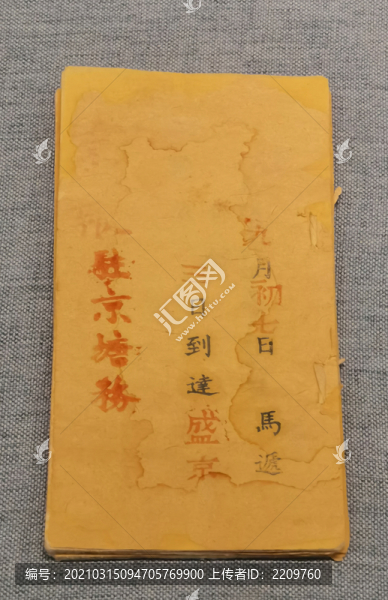 九月初七日 馬遞
日到達盛京
駐京塘務
汇图网
www.huitu.com
编号：20210315094705769900 上传者ID：2209760